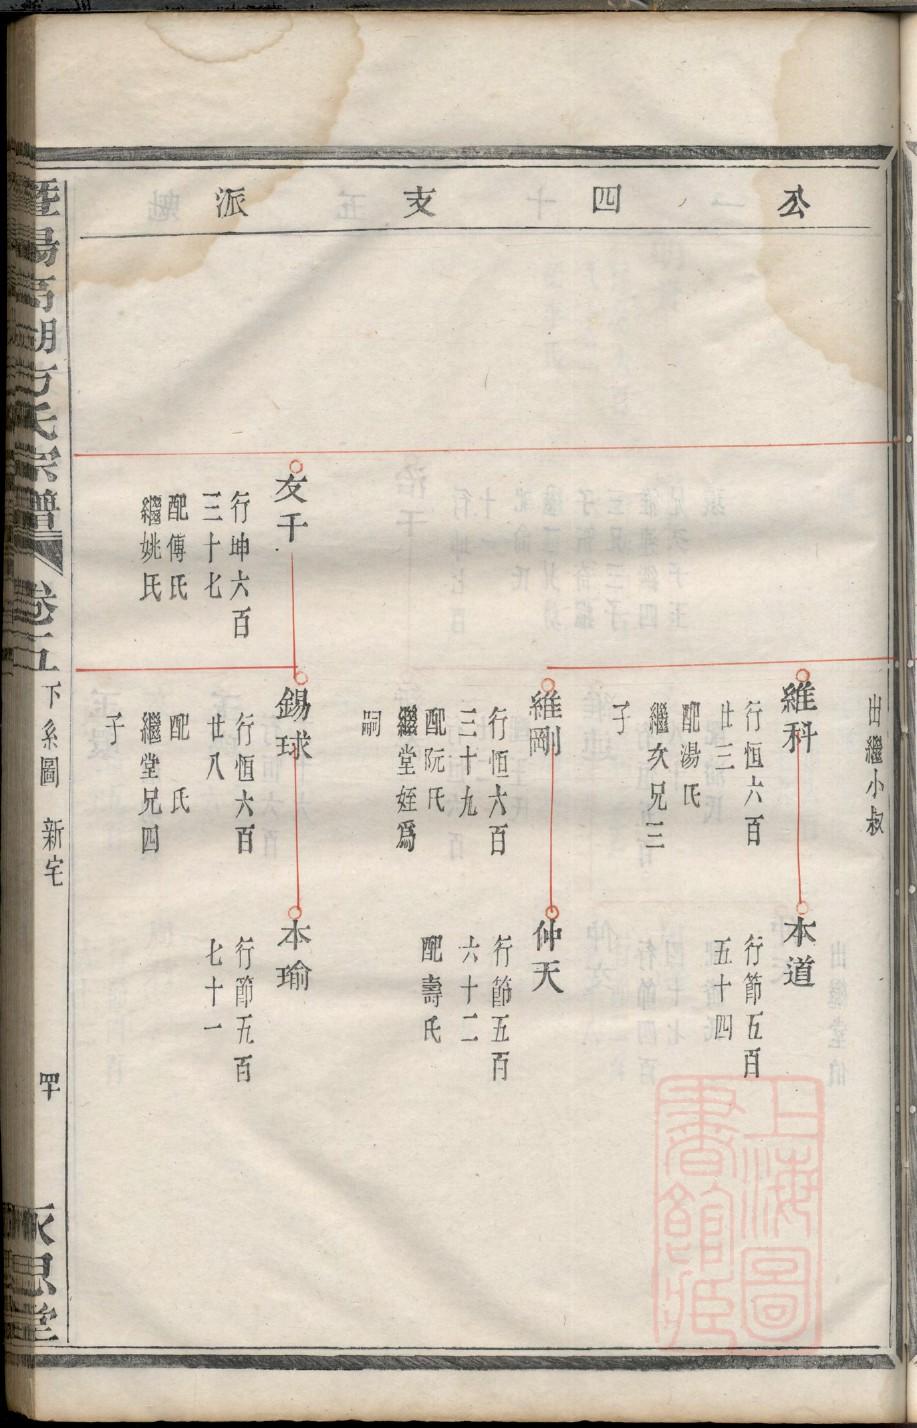 公四支派
出繼小叔
維科
行恒六百
廿三
配湯氏
繼次兄三
子
本道
行節五百
五十四
維剛
行恒六百
三十九
配阮氏
繼堂姪爲
嗣
仲天
行節五百
六十二
配壽氏
友千
行坤六百
三十七
配傳氏
繼姚氏
錫球
行恒六百
廿八
配 氏
繼堂兄四
子
本瑜
行節五百
七十一
暨陽高湖方氏宗譜 卷五 下系圖 新宅 罕 永思堂
上海圖
書館藏